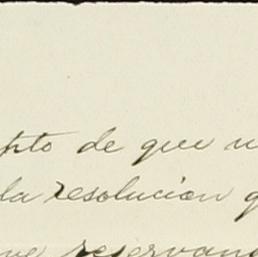 pto de que u
la resolución q
ve reservan